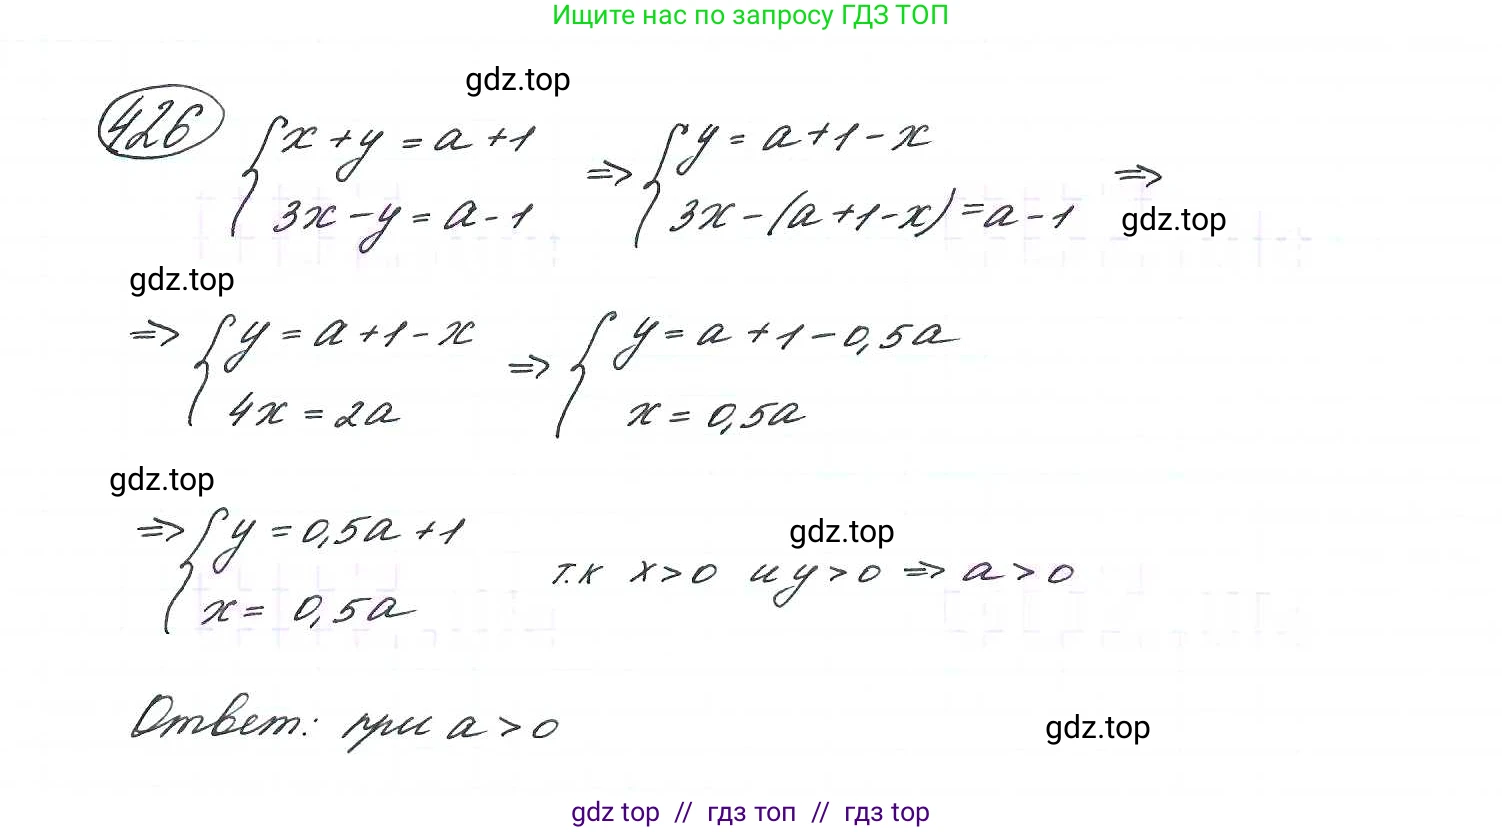 Ищите нас по запросу ГДЗ ТОП
gdz.top
426 { x + y = a + 1 ⇒ { y = a + 1 - x ⇒
3x - y = a - 1 3x - (a + 1 - x) = a - 1
gdz.top
gdz.top
⇒ { y = a + 1 - x ⇒ { y = a + 1 - 0,5a
4x = 2a x = 0,5a
gdz.top
⇒ { y = 0,5a + 1
gdz.top
т.к x > 0 и y > 0 ⇒ a > 0
x = 0,5a
Ответ: при a > 0
gdz.top
gdz top // гдз топ // гдз top